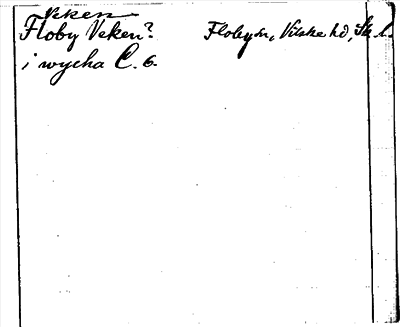 Veken
Floby Veken? Floby sn, Vilske hd, Sk. l.
i wycha C. 6.